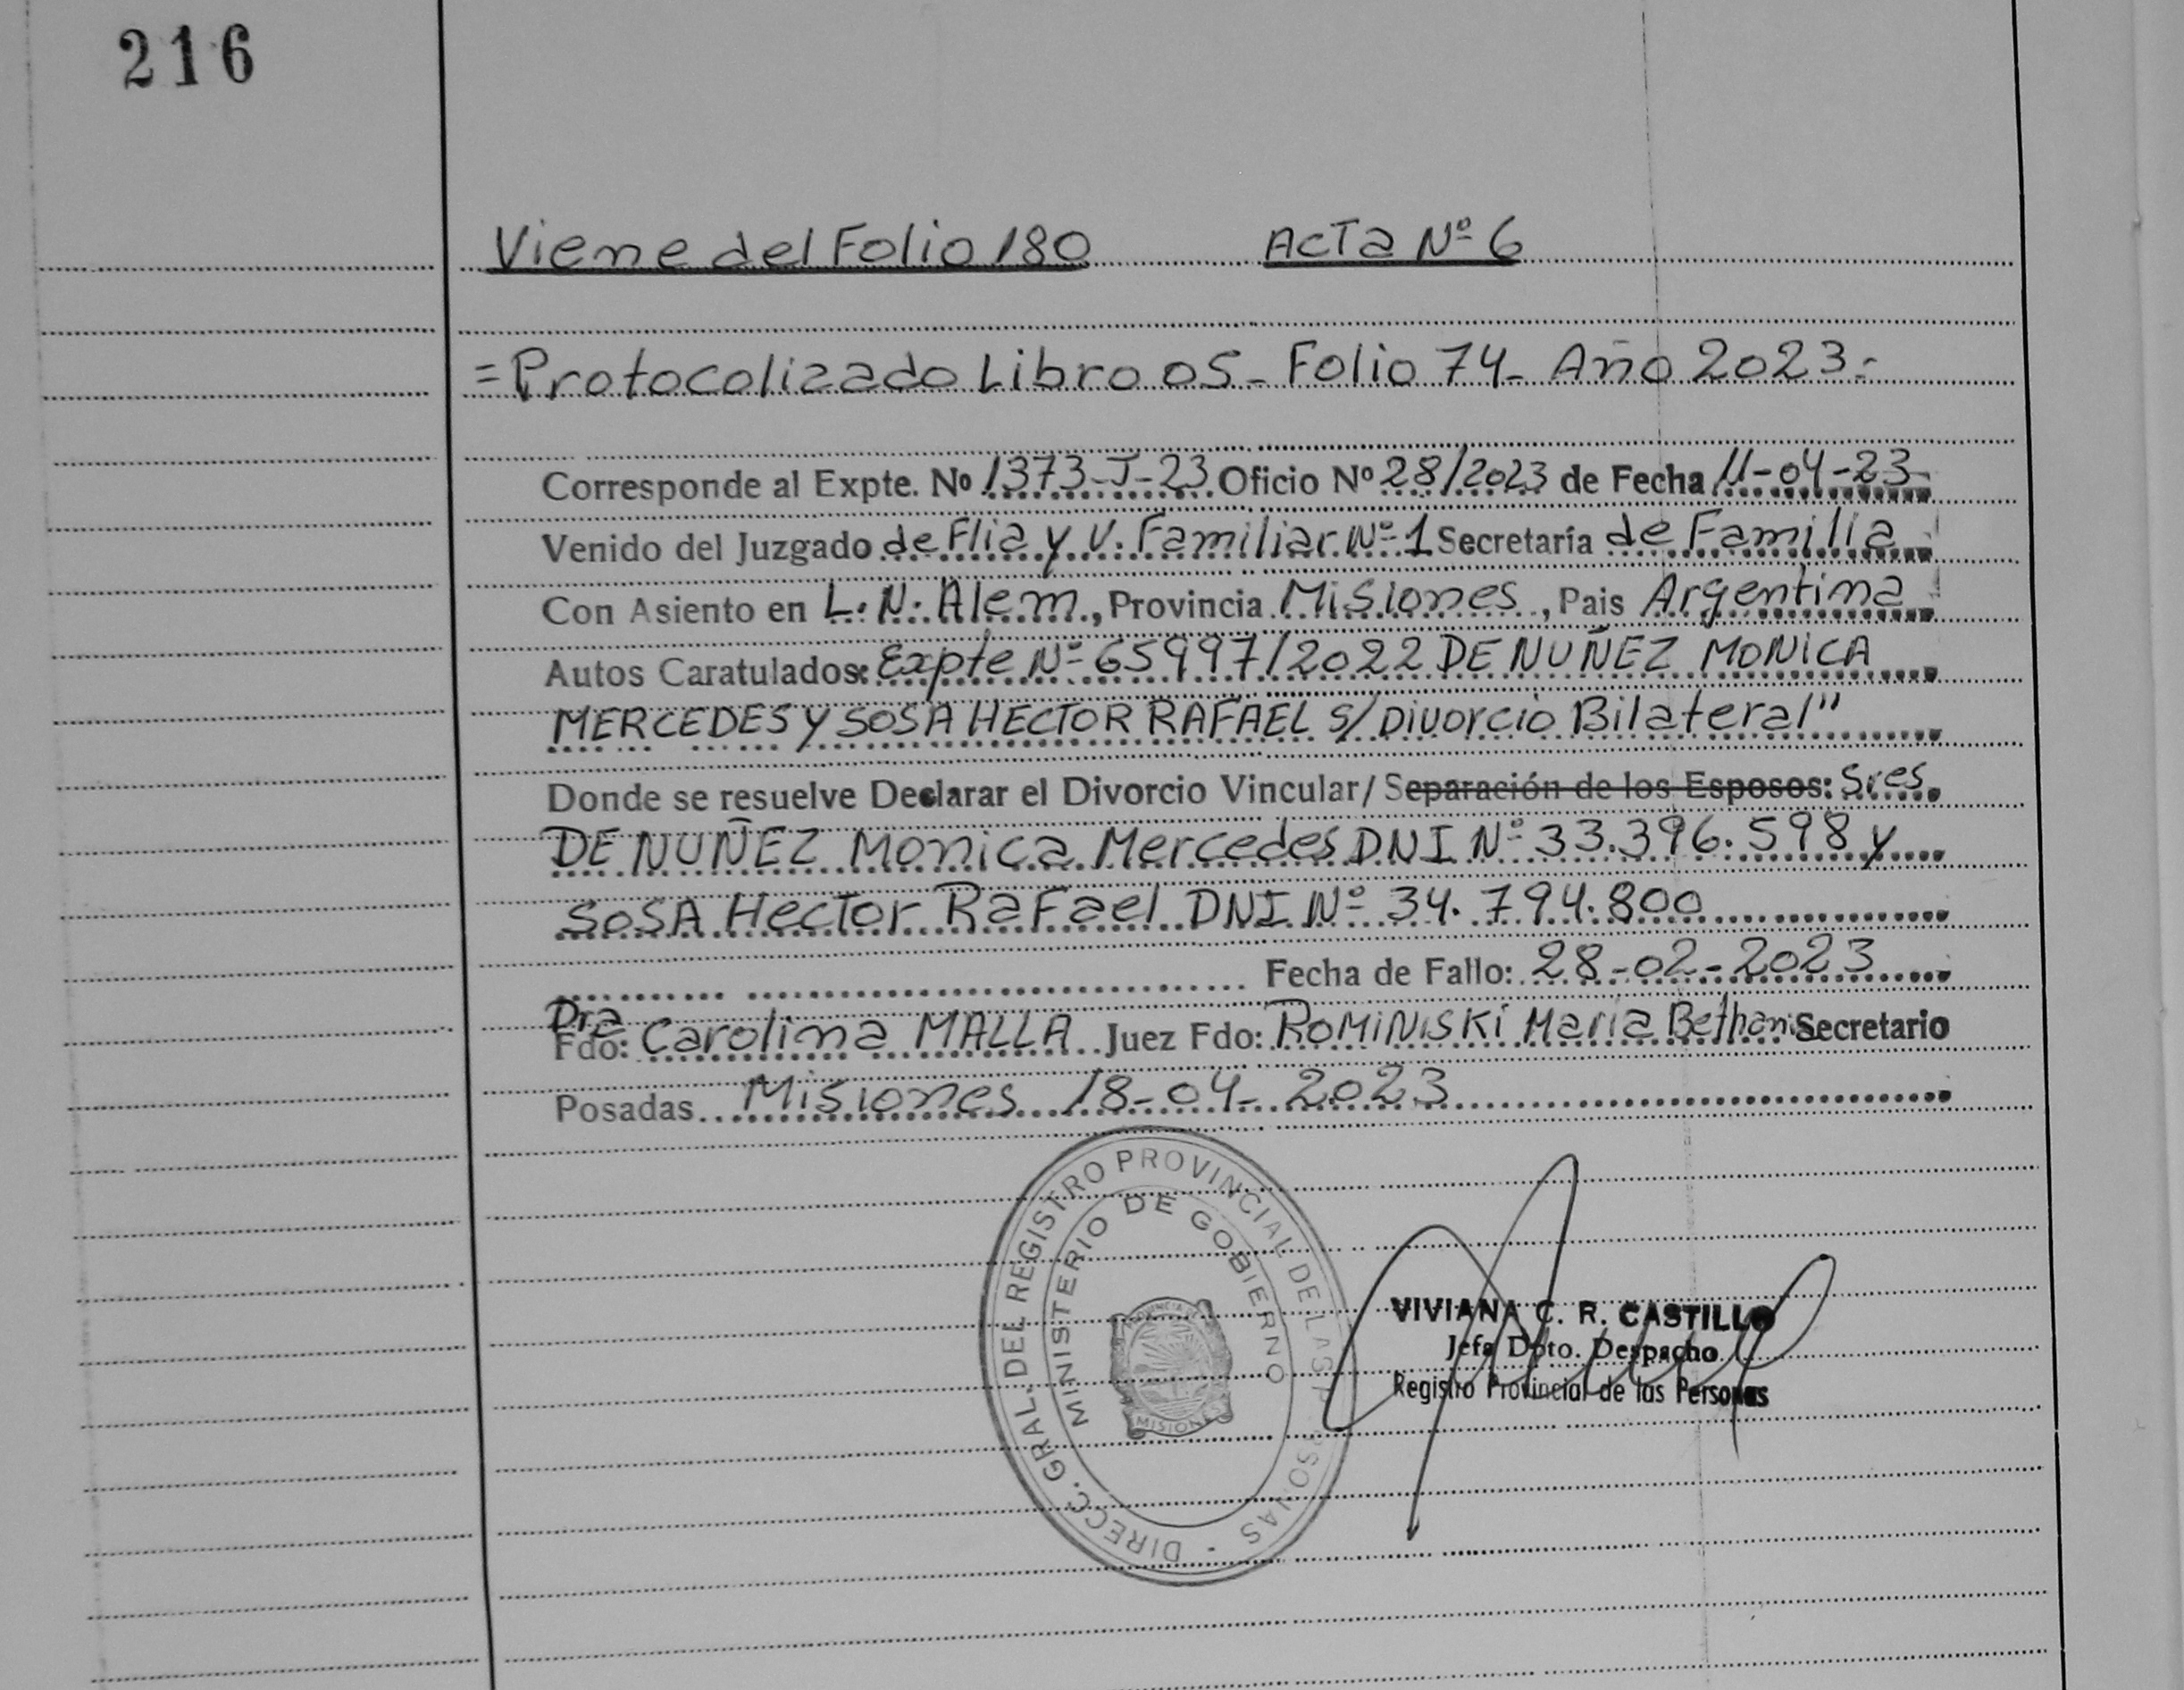 216
Viene del Folio 180 Acta Nº 6
= Protocolizado Libro 05 - Folio 74 - Año 2023 =
Corresponde al Expte. Nº 1373-J-23 Oficio Nº 28/2023 de Fecha 11-04-23
Venido del Juzgado de Flia y V. Familiar Nº 1 Secretaría de Familia
Con Asiento en L. N. Alem, Provincia Misiones, Pais Argentina
Autos Caratulados: Expte Nº 65997/2022 DE NUÑEZ MONICA
MERCEDES Y SOSA HECTOR RAFAEL S/ Divorcio Bilateral"
Donde se resuelve Declarar el Divorcio Vincular/ Separación de los Esposos: Sres
DE NUÑEZ Monica Mercedes DNI Nº 33.396.598 y
SOSA Hector Rafael DNI Nº 34.794.800
Fecha de Fallo: 28-02-2023
Dra
Fdo: Carolina MALLA Juez Fdo: ROMINISKI Maria Bethani Secretario
Posadas Misiones 18-04-2023
DIRECC. GRAL. DEL REGISTRO PROVINCIAL DE LAS PERSONAS
MINISTERIO DE GOBIERNO
PROVINCIA DE
MISIONES
VIVIANA C. R. CASTILLO
Jefa Dpto. Despacho
Registro Provincial de las Personas